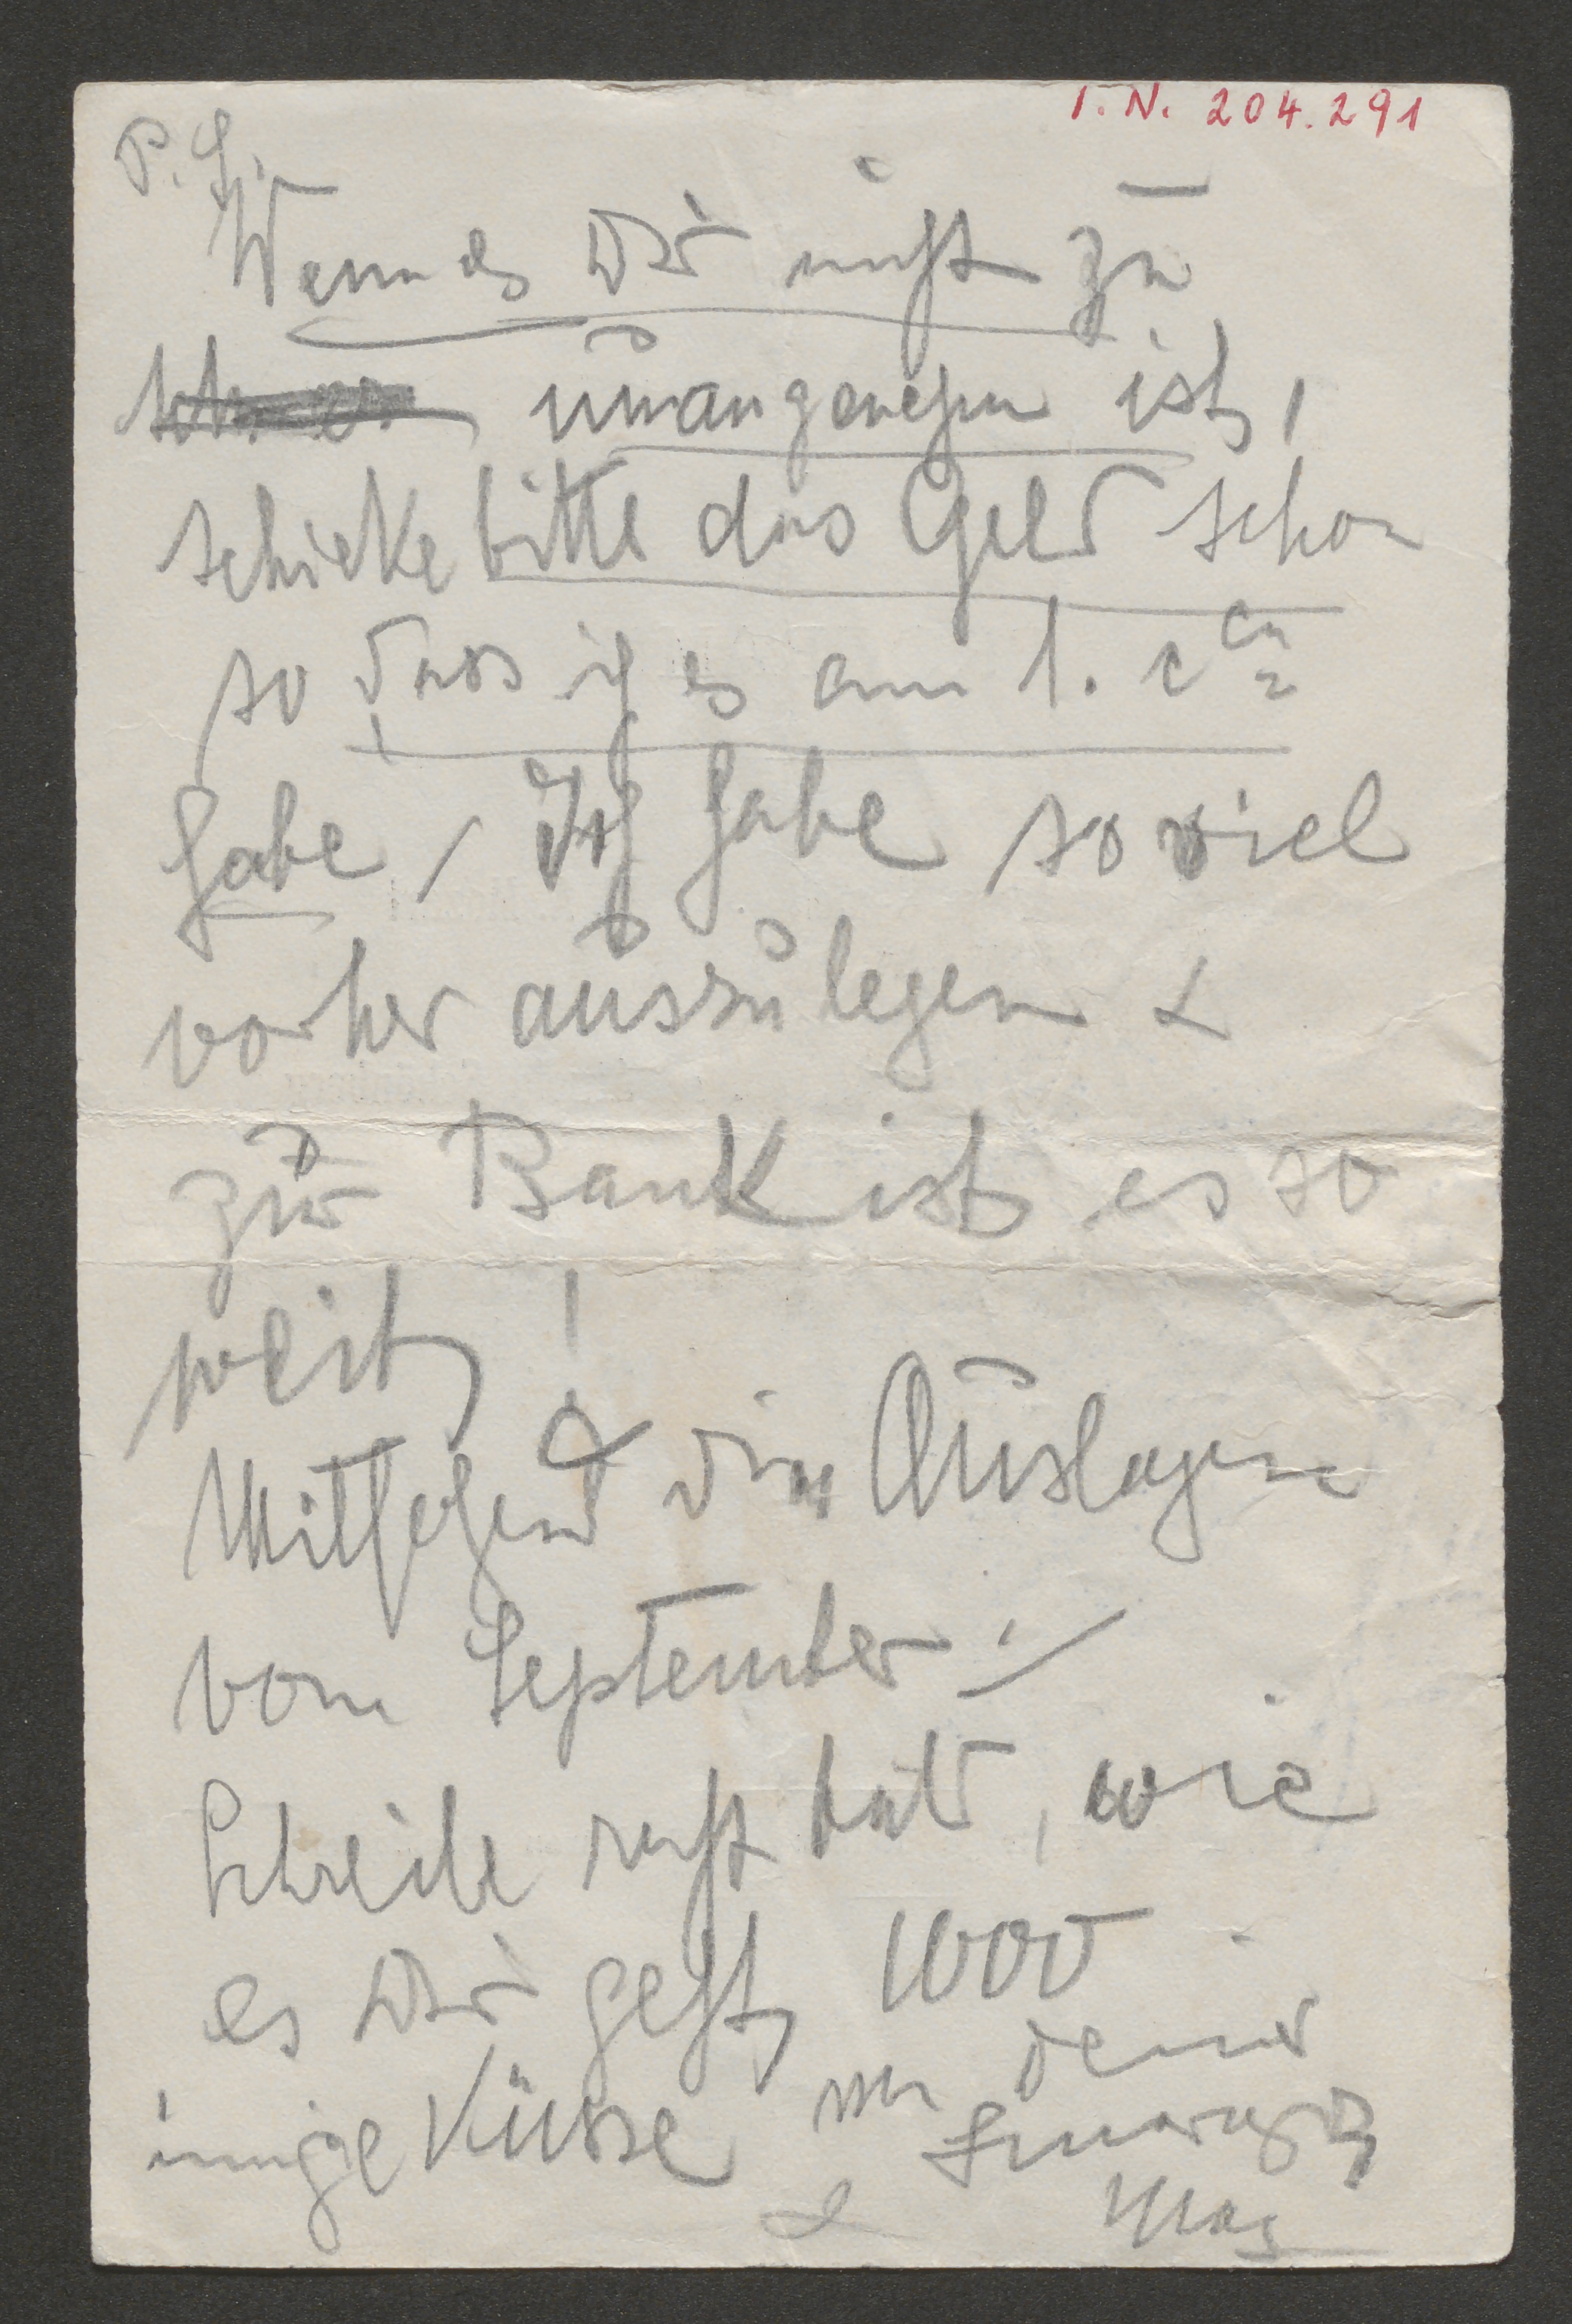 I. N. 204.291
P. S.
Wenn es Dir nicht zu
unangenehm ist,
schicke bitte das Geld schon
so dass ich es am 1. ctn
habe, Ich habe so viel
vorher auszulegen &
zur Bank ist es so
weit!
Mitfolgend die Auslagen
vom September.
Schreibe recht bald, wie
es Dir geht, 1000
innige Küsse von Deiner
&